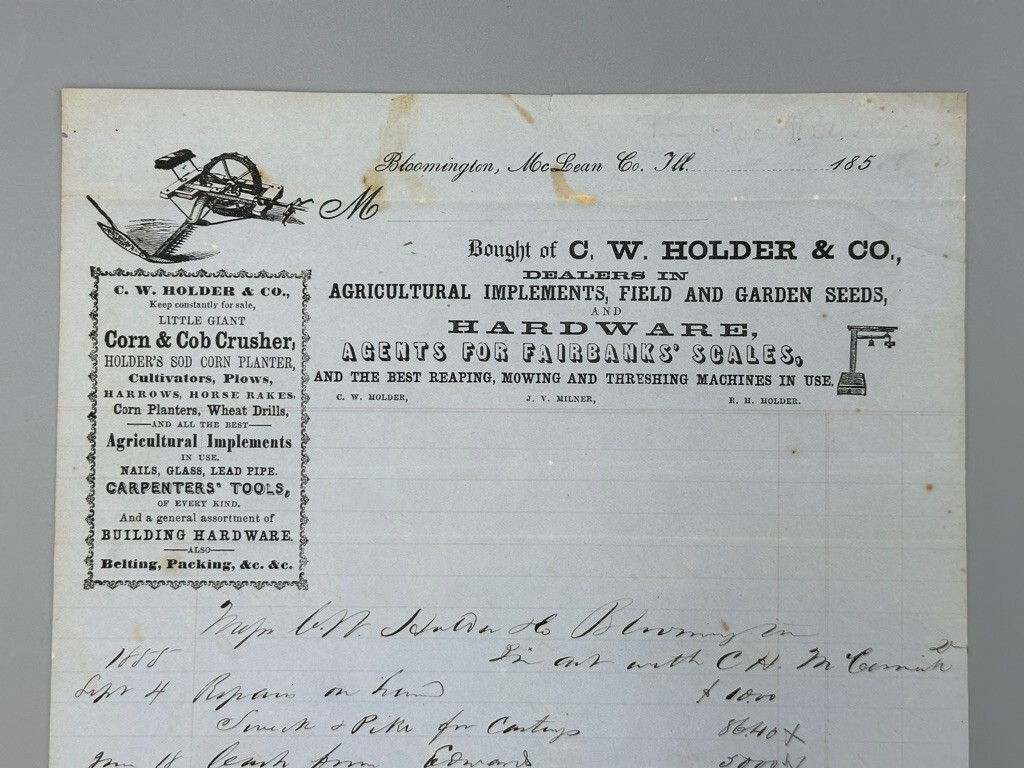 Bloomington, McLean Co. Ill. 185
M
Bought of C. W. HOLDER & CO.,
DEALERS IN
AGRICULTURAL IMPLEMENTS, FIELD AND GARDEN SEEDS,
AND
HARDWARE,
AGENTS FOR FAIRBANKS' SCALES,
AND THE BEST REAPING, MOWING AND THRESHING MACHINES IN USE.
C. W. HOLDER, J. V. MILNER, R. H. HOLDER.
C. W. HOLDER & CO.,
Keep constantly for sale,
LITTLE GIANT
Corn & Cob Crusher,
HOLDER'S SOD CORN PLANTER,
Cultivators, Plows,
HARROWS, HORSE RAKES,
Corn Planters, Wheat Drills,
AND ALL THE BEST
Agricultural Implements
IN USE.
NAILS, GLASS, LEAD PIPE.
CARPENTERS' TOOLS,
OF EVERY KIND.
And a general assortment of
BUILDING HARDWARE.
ALSO
Belting, Packing, &c. &c.
Messrs C. W. Holder & Co Bloomington
1855 In act with C H McCormick Dr
Sept 4 Repairs on hand $ 10.00
& Pike for Castings 86.40 X
Cash from Edwards